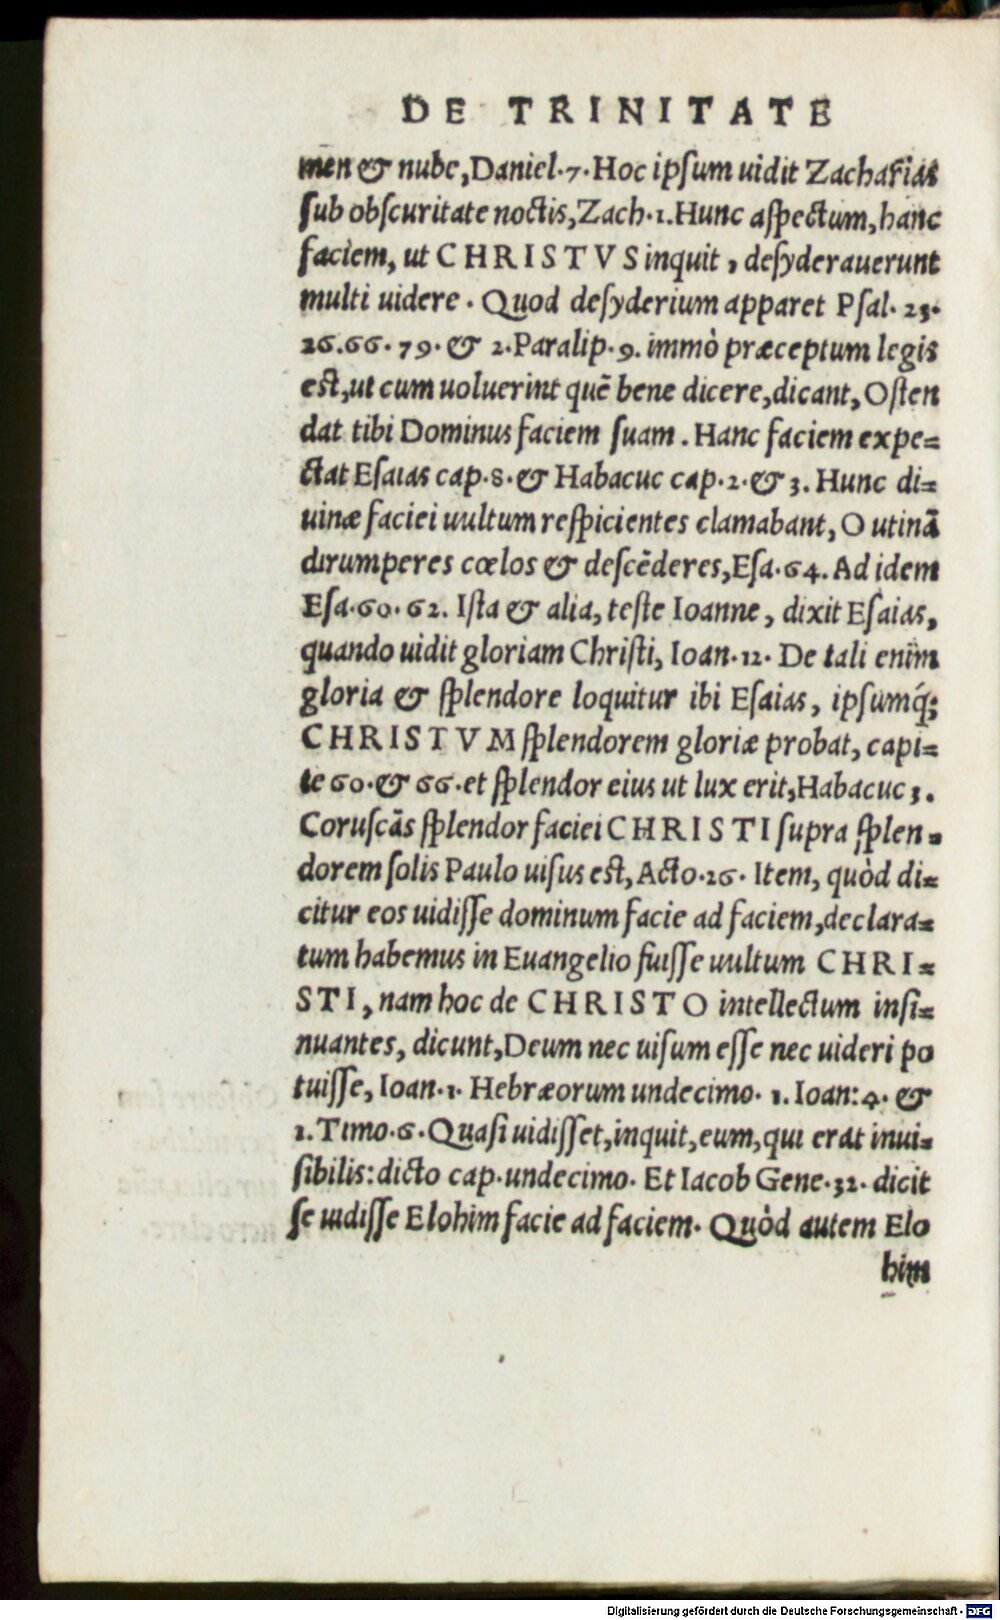 DE TRINITATE
men & nube, Daniel. 7. Hoc ipſum uidit Zacharias
ſub obſcuritate noctis, Zach. 1. Hunc aſpectum, hanc
faciem, ut CHRISTVS inquit, deſyderauerunt
multi uidere. Quod deſyderium apparet Pſal. 23.
26. 66. 79. & 2. Paralip. 9. immò præceptum legis
eſt, ut cum uoluerint quē bene dicere, dicant, Oſten
dat tibi Dominus faciem ſuam. Hanc faciem expe=
ctat Eſaias cap. 8. & Habacuc cap. 2. & 3. Hunc di=
uinæ faciei uultum reſpicientes clamabant, O utinā
dirumperes cœlos & deſcēderes, Eſa. 64. Ad idem
Eſa. 60. 62. Iſta & alia, teſte Ioanne, dixit Eſaias,
quando uidit gloriam Chriſti, Ioan. 12. De tali enim
gloria & ſplendore loquitur ibi Eſaias, ipſumq́;
CHRISTVM ſplendorem gloriæ probat, capi=
te 60. & 66. et ſplendor eius ut lux erit, Habacuc 3.
Coruſcās ſplendor faciei CHRISTI ſupra ſplen=
dorem ſolis Paulo uiſus eſt, Acto. 26. Item, quòd di=
citur eos uidiſſe dominum facie ad faciem, declara=
tum habemus in Euangelio fuiſſe uultum CHRI=
STI, nam hoc de CHRISTO intellectum inſi=
nuantes, dicunt, Deum nec uiſum eſſe nec uideri po
tuiſſe, Ioan. 1. Hebræorum undecimo. 1. Ioan: 4. &
1. Timo. 6. Quaſi uidiſſet, inquit, eum, qui erat inui=
ſibilis: dicto cap. undecimo. Et Iacob Gene. 32. dicit
ſe uidiſſe Elohim facie ad faciem. Quòd autem Elo
him
Digitalisierung gefördert durch die Deutsche Forschungsgemeinschaft - DFG